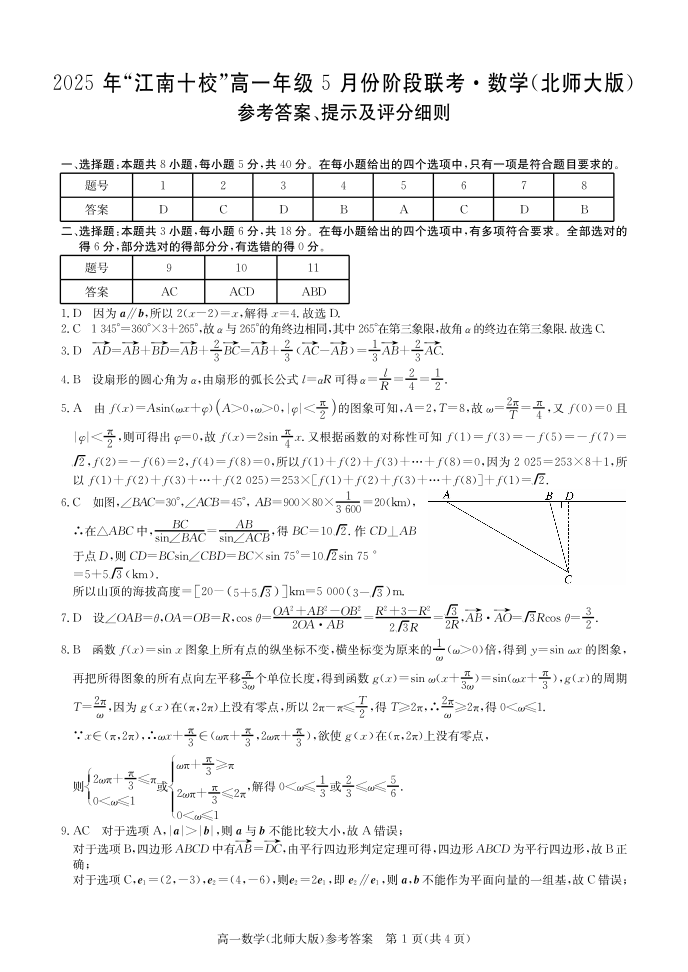 2025 年“江南十校”高一年级 5 月份阶段联考·数学(北师大版)
参考答案、提示及评分细则
一、选择题:本题共 8 小题,每小题 5 分,共 40 分。在每小题给出的四个选项中,只有一项是符合题目要求的。
题号 1 2 3 4 5 6 7 8
答案 D C D B A C D B
二、选择题:本题共 3 小题,每小题 6 分,共 18 分。在每小题给出的四个选项中,有多项符合要求。全部选对的
得 6 分,部分选对的得部分分,有选错的得 0 分。
题号 9 10 11
答案 AC ACD ABD
1. D 因为 a∥b,所以 2(x−2)=x,解得 x=4. 故选 D.
2. C 1 345°=360°×3+265°,故 α 与 265°的角终边相同,其中 265°在第三象限,故角 α 的终边在第三象限. 故选 C.
3. D \overrightarrow{AD}=\overrightarrow{AB}+\overrightarrow{BD}=\overrightarrow{AB}+\frac{2}{3}\overrightarrow{BC}=\overrightarrow{AB}+\frac{2}{3}(\overrightarrow{AC}−\overrightarrow{AB})=\frac{1}{3}\overrightarrow{AB}+\frac{2}{3}\overrightarrow{AC}.
4. B 设扇形的圆心角为 α,由扇形的弧长公式 l=αR 可得 α=\frac{l}{R}=\frac{2}{4}=\frac{1}{2}.
5. A 由 f(x)=Asin(ωx+φ)(A>0,ω>0,|φ|<\frac{π}{2})的图象可知,A=2,T=8,故 ω=\frac{2π}{T}=\frac{π}{4},又 f(0)=0 且
|φ|<\frac{π}{2},则可得出 φ=0,故 f(x)=2sin \frac{π}{4}x. 又根据函数的对称性可知 f(1)=f(3)=−f(5)=−f(7)=
√2,f(2)=−f(6)=2,f(4)=f(8)=0,所以f(1)+f(2)+f(3)+…+f(8)=0,因为 2 025=253×8+1,所
以 f(1)+f(2)+f(3)+…+f(2 025)=253×[f(1)+f(2)+f(3)+…+f(8)]+f(1)=√2.
6. C 如图,∠BAC=30°,∠ACB=45°, AB=900×80×\frac{1}{3 600}=20(km),
∴在△ABC 中,\frac{BC}{sin∠BAC}=\frac{AB}{sin∠ACB},得 BC=10√2. 作 CD⊥AB
于点 D,则 CD=BCsin∠CBD=BC×sin 75°=10√2sin 75 °
=5+5√3(km).
所以山顶的海拔高度=[20−(5+5√3)]km=5 000(3−√3)m.
A B D
C
7. D 设∠OAB=θ,OA=OB=R,cos θ=\frac{OA²+AB²−OB²}{2OA·AB}=\frac{R²+3−R²}{2√3R}=\frac{√3}{2R},\overrightarrow{AB}·\overrightarrow{AO}=√3Rcos θ=\frac{3}{2}.
8. B 函数 f(x)=sin x 图象上所有点的纵坐标不变,横坐标变为原来的\frac{1}{ω}(ω>0)倍,得到 y=sin ωx 的图象,
再把所得图象的所有点向左平移\frac{π}{3ω}个单位长度,得到函数 g(x)=sin ω(x+\frac{π}{3ω})=sin(ωx+\frac{π}{3}),g(x)的周期
T=\frac{2π}{ω},因为 g(x)在(π,2π)上没有零点,所以 2π−π≤\frac{T}{2},得 T≥2π,∴\frac{2π}{ω}≥2π,得 0<ω≤1.
∵x∈(π,2π),∴ωx+\frac{π}{3}∈(ωπ+\frac{π}{3},2ωπ+\frac{π}{3}),欲使 g(x)在(π,2π)上没有零点,
则{2ωπ+\frac{π}{3}≤π, 0<ω≤1 或{ωπ+\frac{π}{3}≥π, 2ωπ+\frac{π}{3}≤2π, 0<ω≤1 ,解得 0<ω≤\frac{1}{3}或\frac{2}{3}≤ω≤\frac{5}{6}.
9. AC 对于选项 A,|a|>|b|,则 a 与 b 不能比较大小,故 A 错误;
对于选项 B,四边形 ABCD 中有\overrightarrow{AB}=\overrightarrow{DC},由平行四边形判定定理可得,四边形 ABCD 为平行四边形,故 B 正
确;
对于选项 C,e₁=(2,−3),e₂=(4,−6),则e₂=2e₁,即 e₂∥e₁,则 a,b 不能作为平面向量的一组基,故 C 错误;
高一数学(北师大版)参考答案 第 1 页(共 4 页)